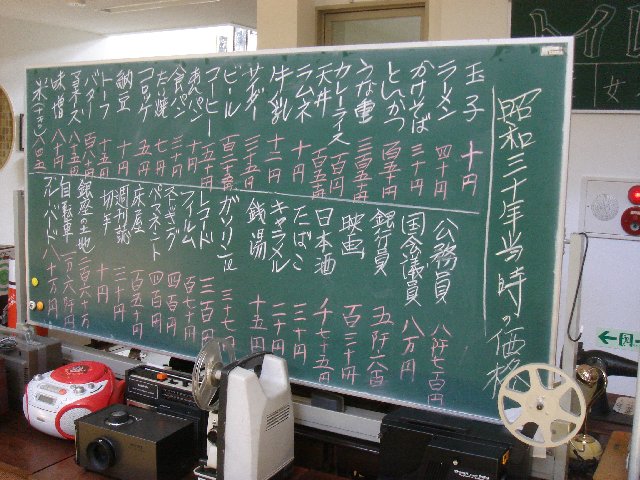 昭和三十年当時の価格
玉子 十円
ラーメン 四十円
かけそば 三十円
とんかつ
うな重 三百五十円
カレーライス 百円
天丼 百五十円
ラムネ 十円
牛乳 十二円
サイダー 三十五円
ビール 百二十五円
コーヒー 五十円
あんパン 十円
食パン 三十円
たい焼
コロッケ 五円
納豆 十円
トーフ 十五円
バター
マヨネーズ
味噌 八十円
公務員 八阡七百円
国会議員 八万円
銀行員 五阡六百円
映画 百三十円
日本酒
たばこ 三十円
キャラメル 二十円
銭湯 十五円
ガソリン 三十七円
レコード 三百円
フィルム
ストッキング 四百円
パーマネント
床屋
週刊誌 三十円
切手 十円
銀座土地 二百六十万
自転車
トイレ
女
非常口